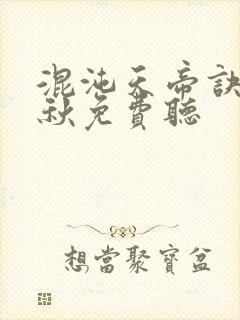 混沌天帝訣
秋免費聽
想當聚寶盆